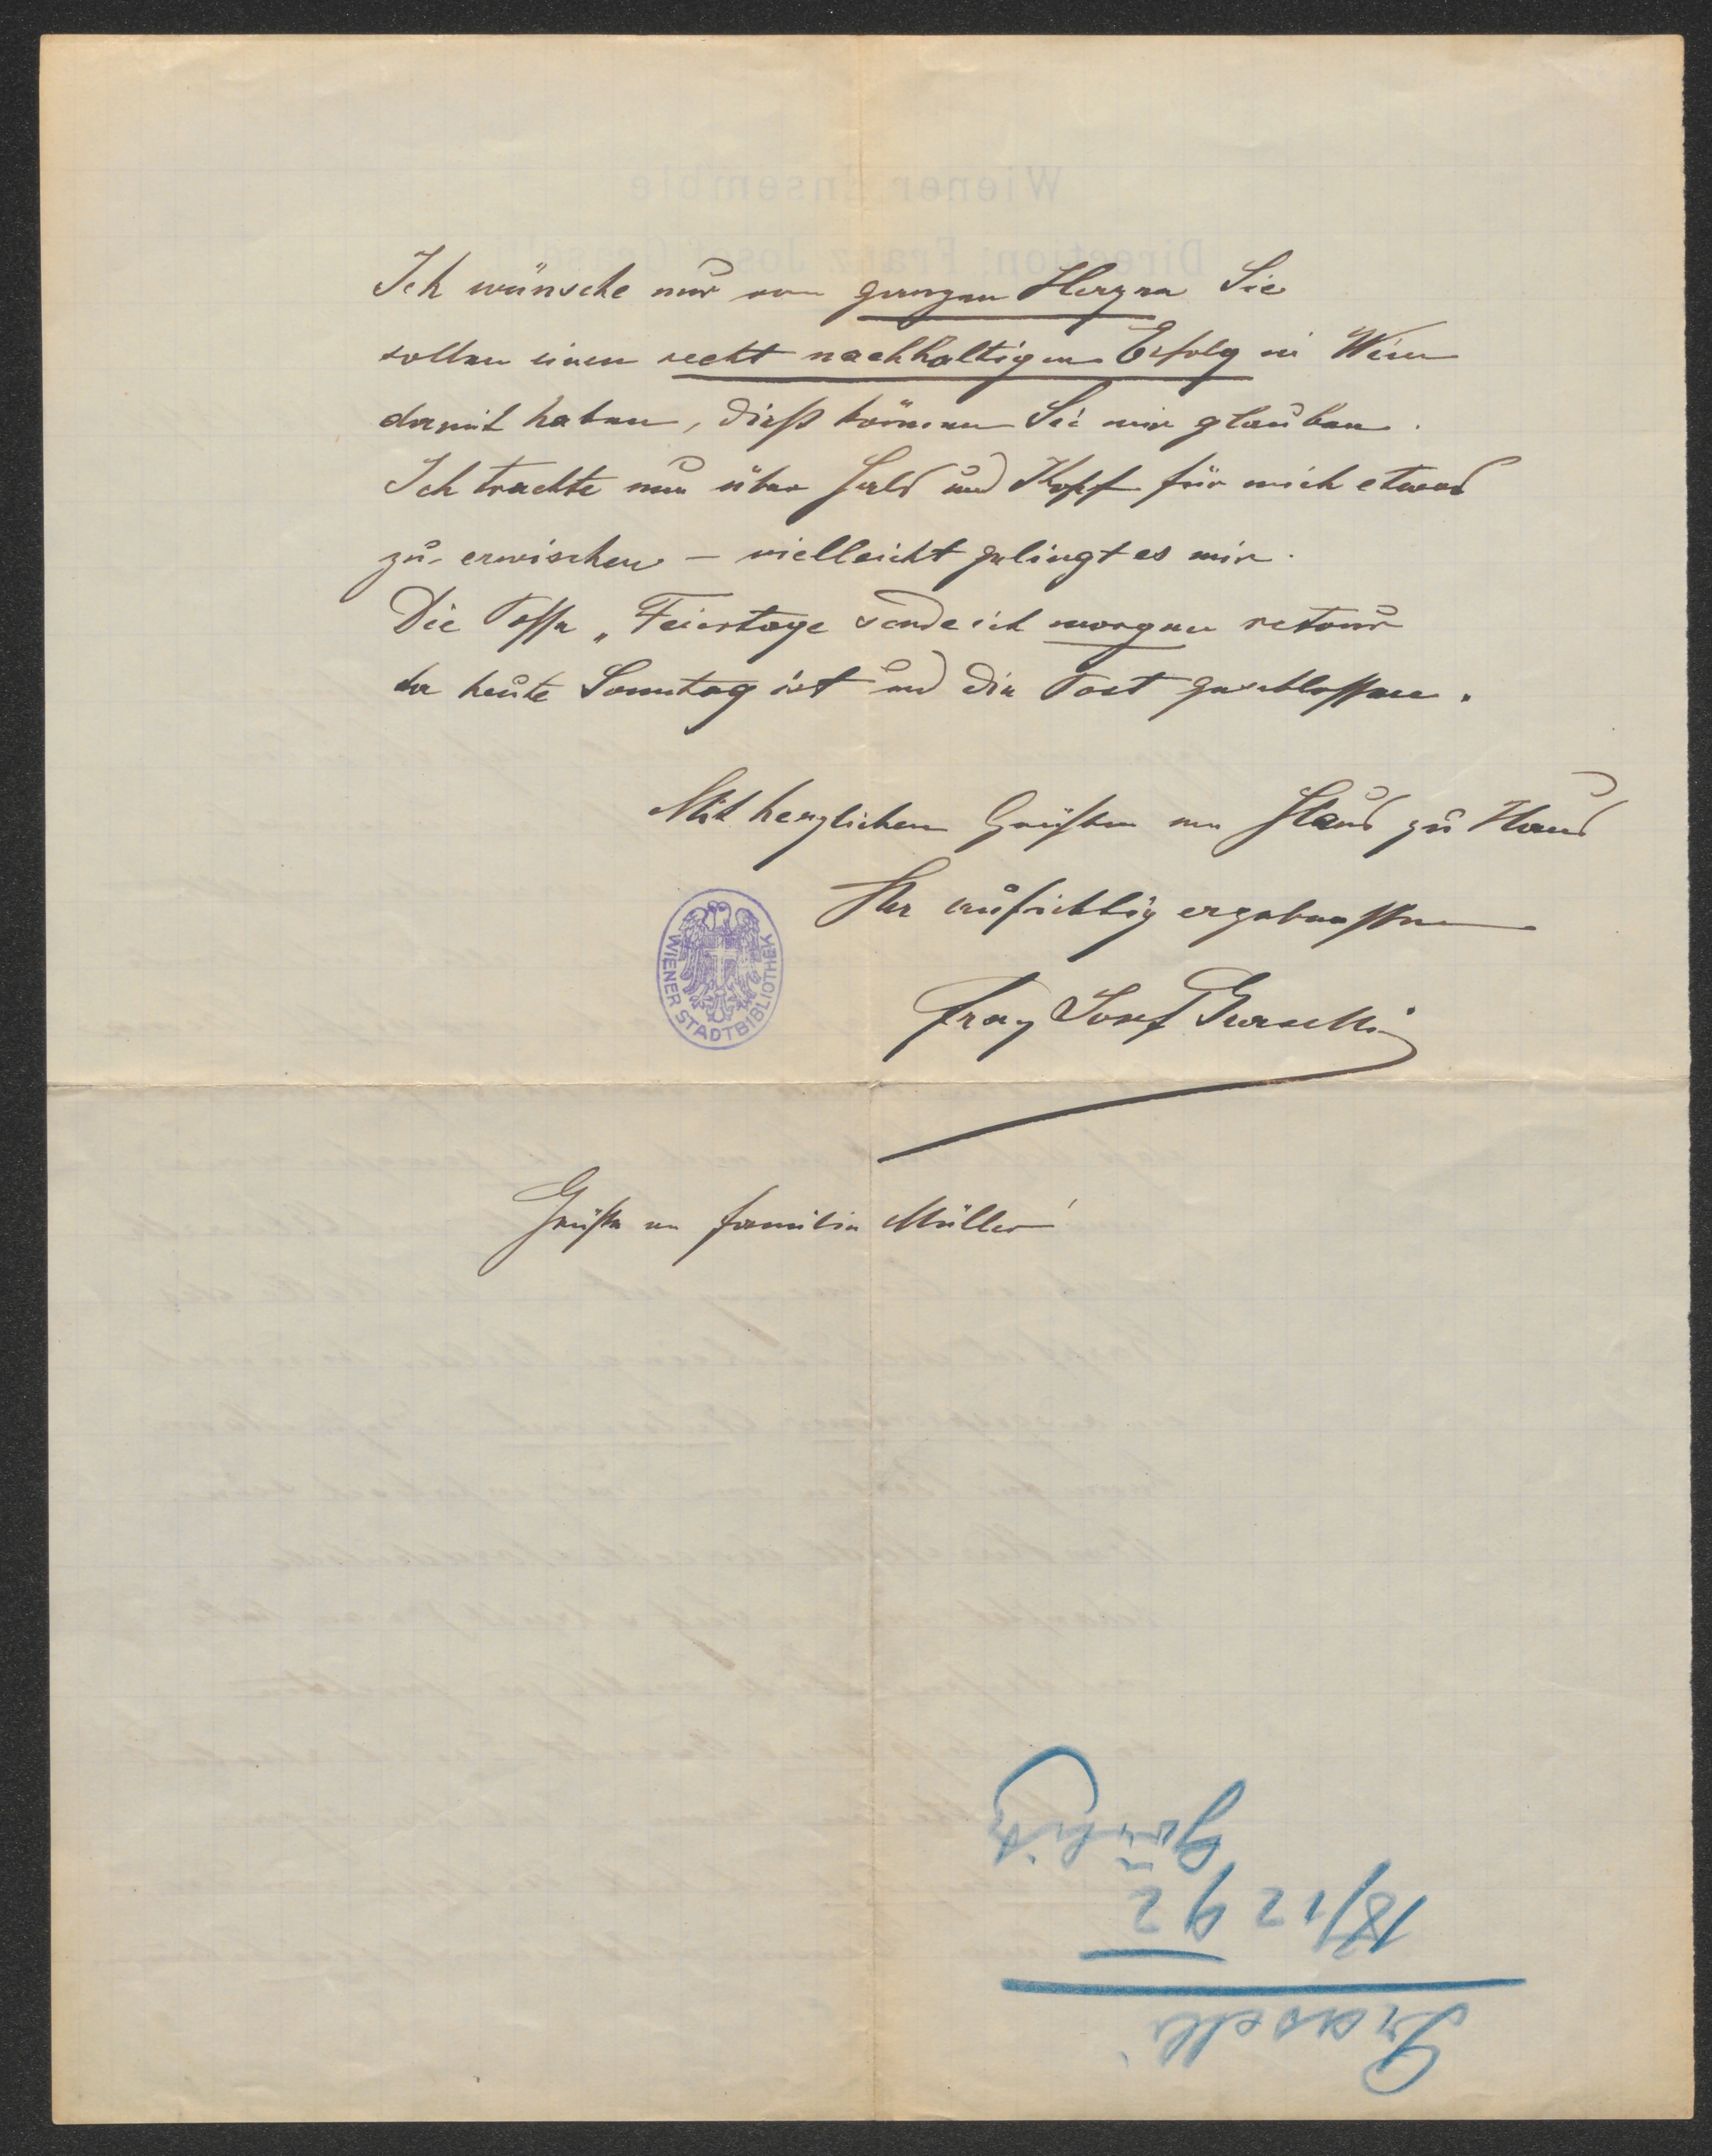 Ich wünsche nur von ganzen Herzen Sie
sollen einen recht nachhaltigen Erfolg in Wien
damit haben, dieß können Sie mir glauben.
Ich trachte nun über Hals und Kopf für mich etwas
zu erwischen – vielleicht gelingt es mir.
Die Posse „Feiertage sende ich morgen retour
da heute Sonntag ist und die Post geschlossen.
Mit herzlichen Grüßen von Haus zu Haus
Ihr aufrichtig ergebenster
Franz Josef Graselli
WIENER STADTBIBLIOTHEK
Grüße an Familie Müller
Graselli
18/12 92